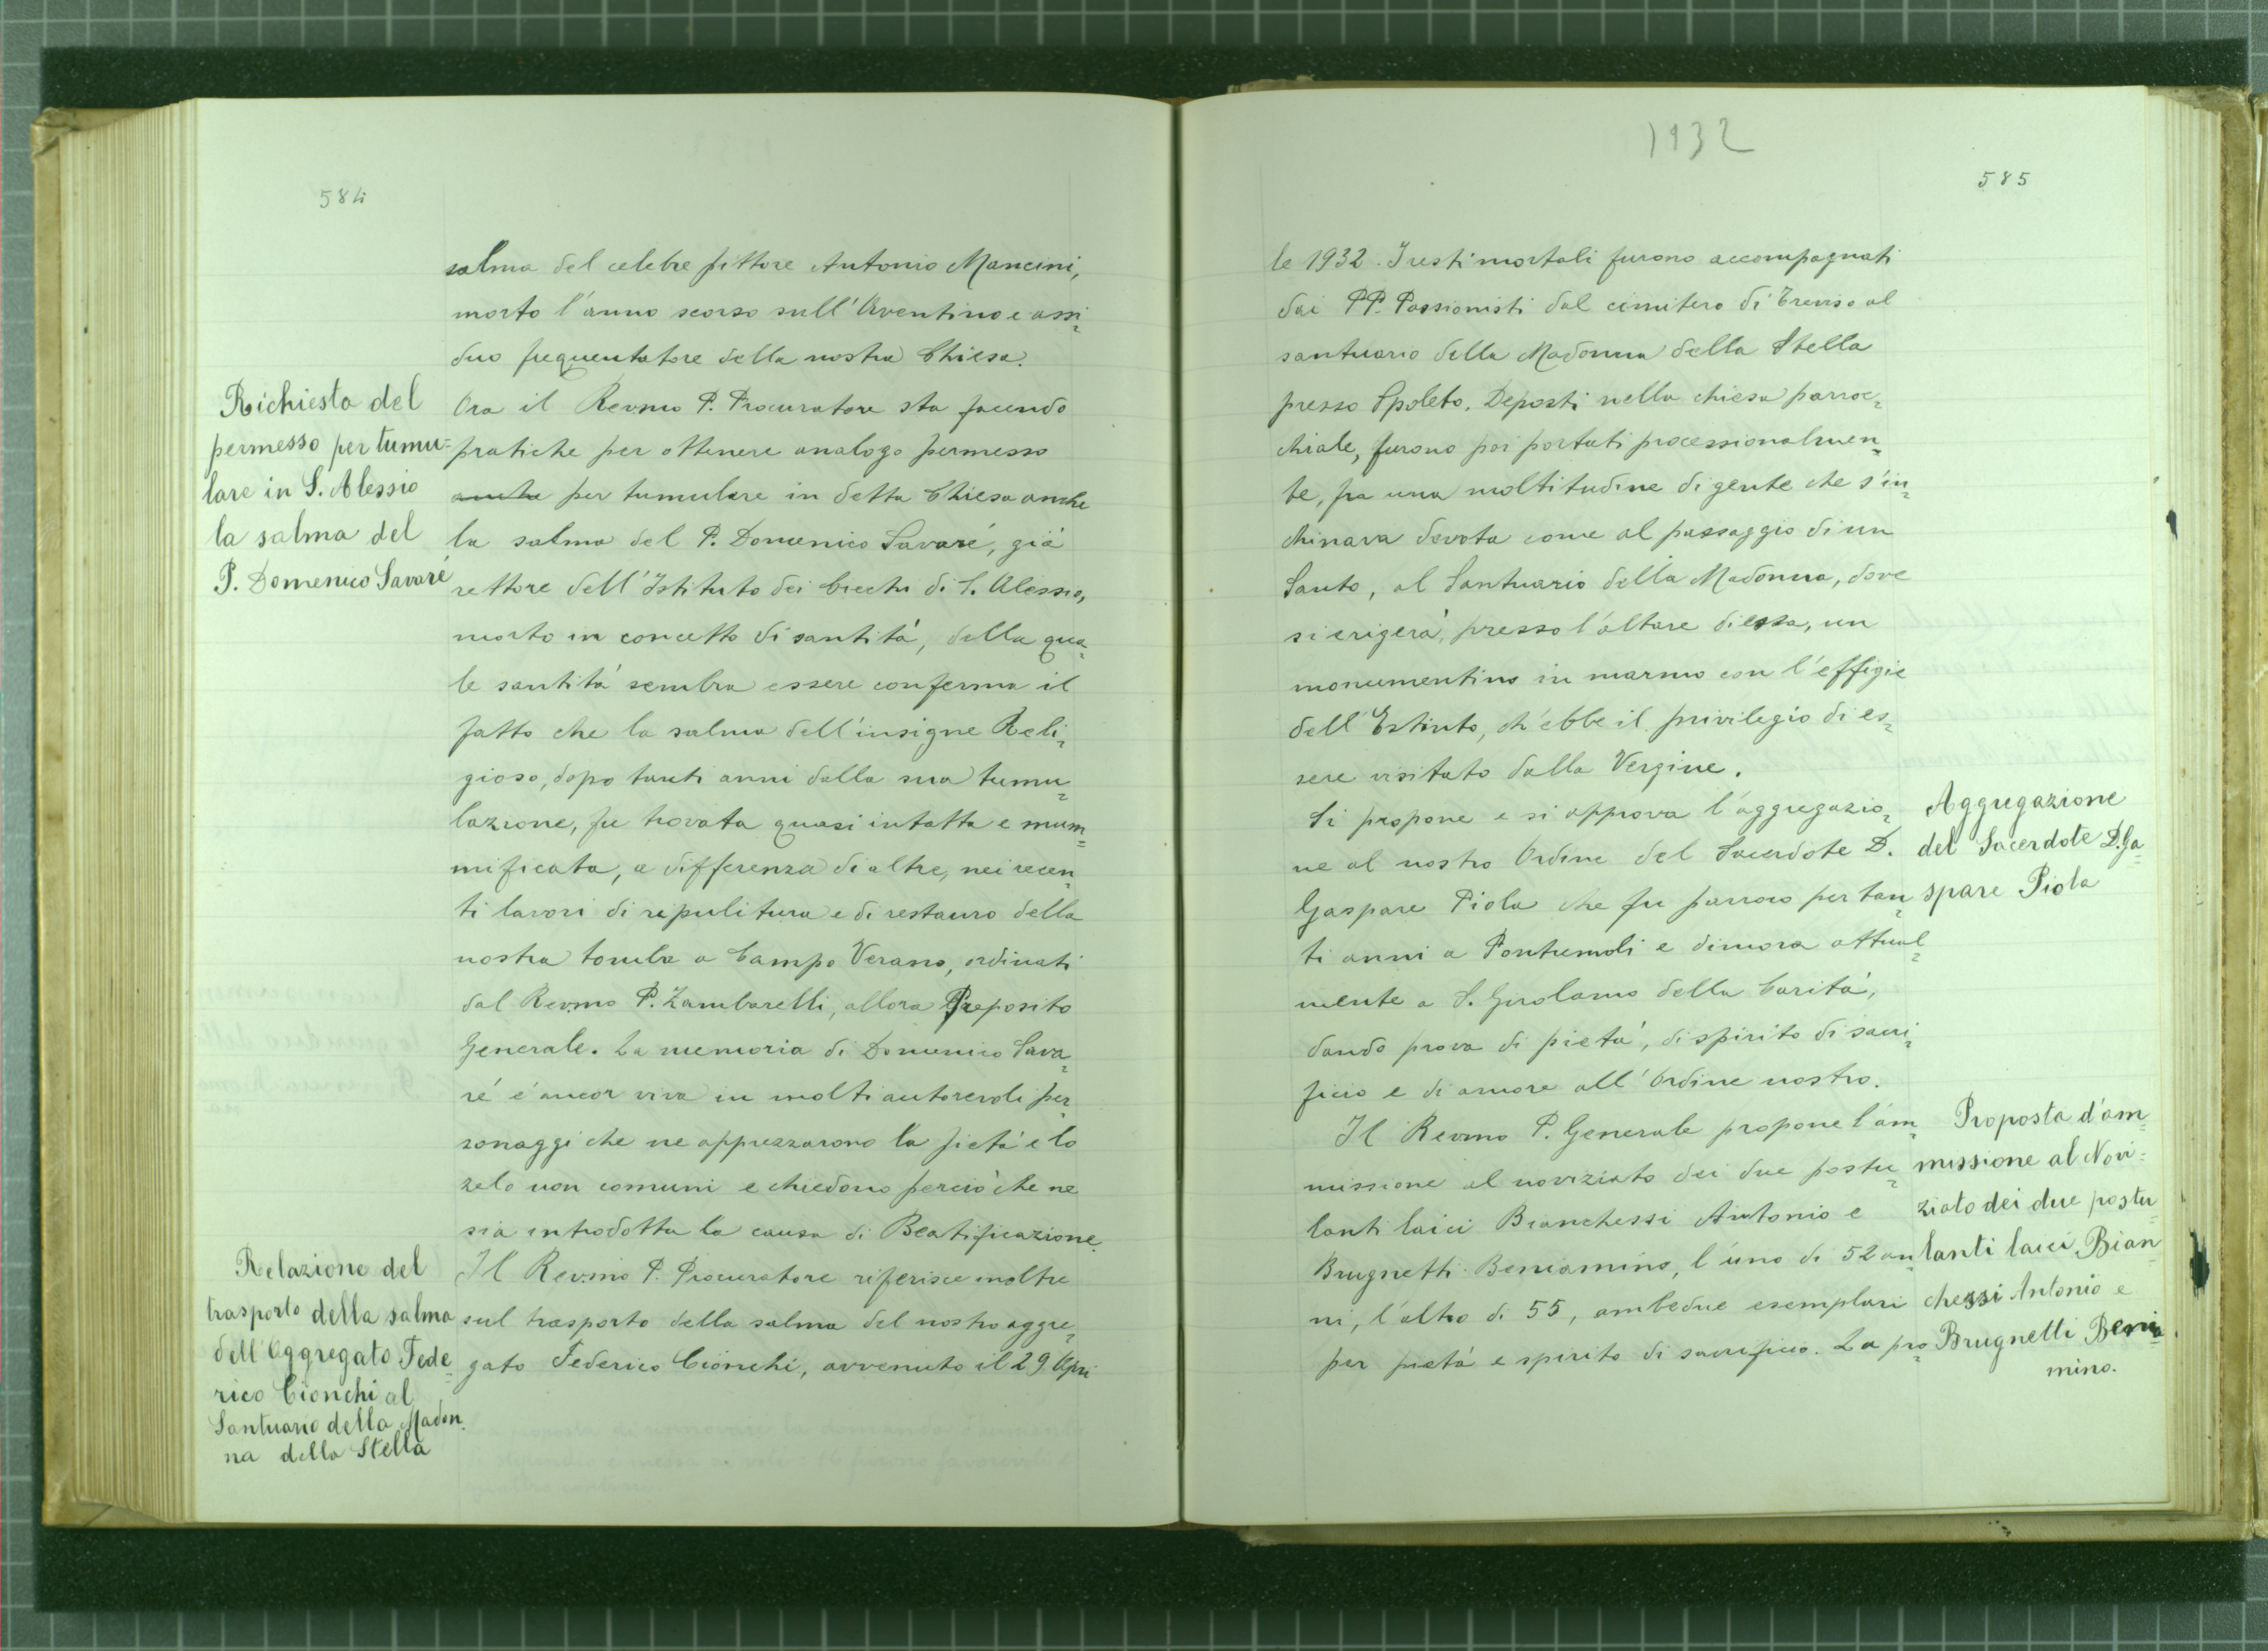 584
salma del celebre pittore Antonio Mancini,
morto l'anno scorso sull'Aventino e assi-
duo frequentatore della nostra Chiesa.
Richiesta del
permesso per tumu-
lare in S. Alessio
la salma del
P. Domenico Savaré
Ora il Revmo P. Procuratore sta facendo
pratiche per ottenere analogo permesso
anche per tumulare in detta Chiesa anche
la salma del P. Domenico Savaré, già
rettore dell'Istituto dei Ciechi di S. Alessio,
morto in concetto di santità, della qua-
le santità sembra essere conferma il
fatto che la salma dell'insigne Reli-
gioso, dopo tanti anni dalla sua tumu-
lazione, fu trovata quasi intatta e mum-
mificata, a differenza di altre, nei recen-
ti lavori di ripulitura e di restauro della
nostra tomba a Campo Verano, ordinati
dal Rev.mo P. Zambarelli, allora Preposito
Generale. La memoria di Domenico Sava-
ré é ancor viva in molti autorevoli per-
sonaggi che ne apprezzarono la pietà e lo
zelo non comuni e chiedono perciò che ne
sia introdotta la causa di Beatificazione.
Relazione del
trasporto della salma
dell'Aggregato Fede-
rico Cionchi al
Santuario della Madon-
na della Stella
Il Rev.mo P. Procuratore riferisce inoltre
sul trasporto della salma del nostro aggre-
gato Federico Cionchi, avvenuto il 29 Apri
1932
585
le 1932. I resti mortali furono accompagnati
dai PP. Passionisti dal cimitero di Treviso al
santuario della Madonna della Stella
presso Spoleto. Deposti nella chiesa parroc-
chiale, furono poi portati processionalmen-
te, fra una moltitudine di gente che s'in-
chinava devota come al passaggio di un
Santo, al Santuario della Madonna, dove
si erigerà, presso l'altare di essa, un
monumentino in marmo con l'effigie
dell'Estinto, ch'ebbe il privilegio di es-
sere visitato dalla Vergine.
Aggregazione
del Sacerdote D. Ga-
spare Piola
Si propone e si approva l'aggregazio-
ne al nostro Ordine del Sacerdote D.
Gaspare Piola che fu parroco per tan-
ti anni a Pontremoli e dimora attual-
mente a S. Girolamo della Carità,
dando prova di pietà, di spirito di sacri-
ficio e di amore all'Ordine nostro.
Proposta d'am-
missione al Novi-
ziato dei due postu-
lanti laici Bian-
chessi Antonio e
Brugnetti Benia-
mino.
Il Revmo P. Generale propone l'am-
missione al noviziato dei due postu-
lanti laici Bianchessi Antonio e
Brugnetti Beniamino, l'uno di 52 an-
ni, l'altro di 55, ambedue esemplari
per pietà e spirito di sacrificio. La pro-